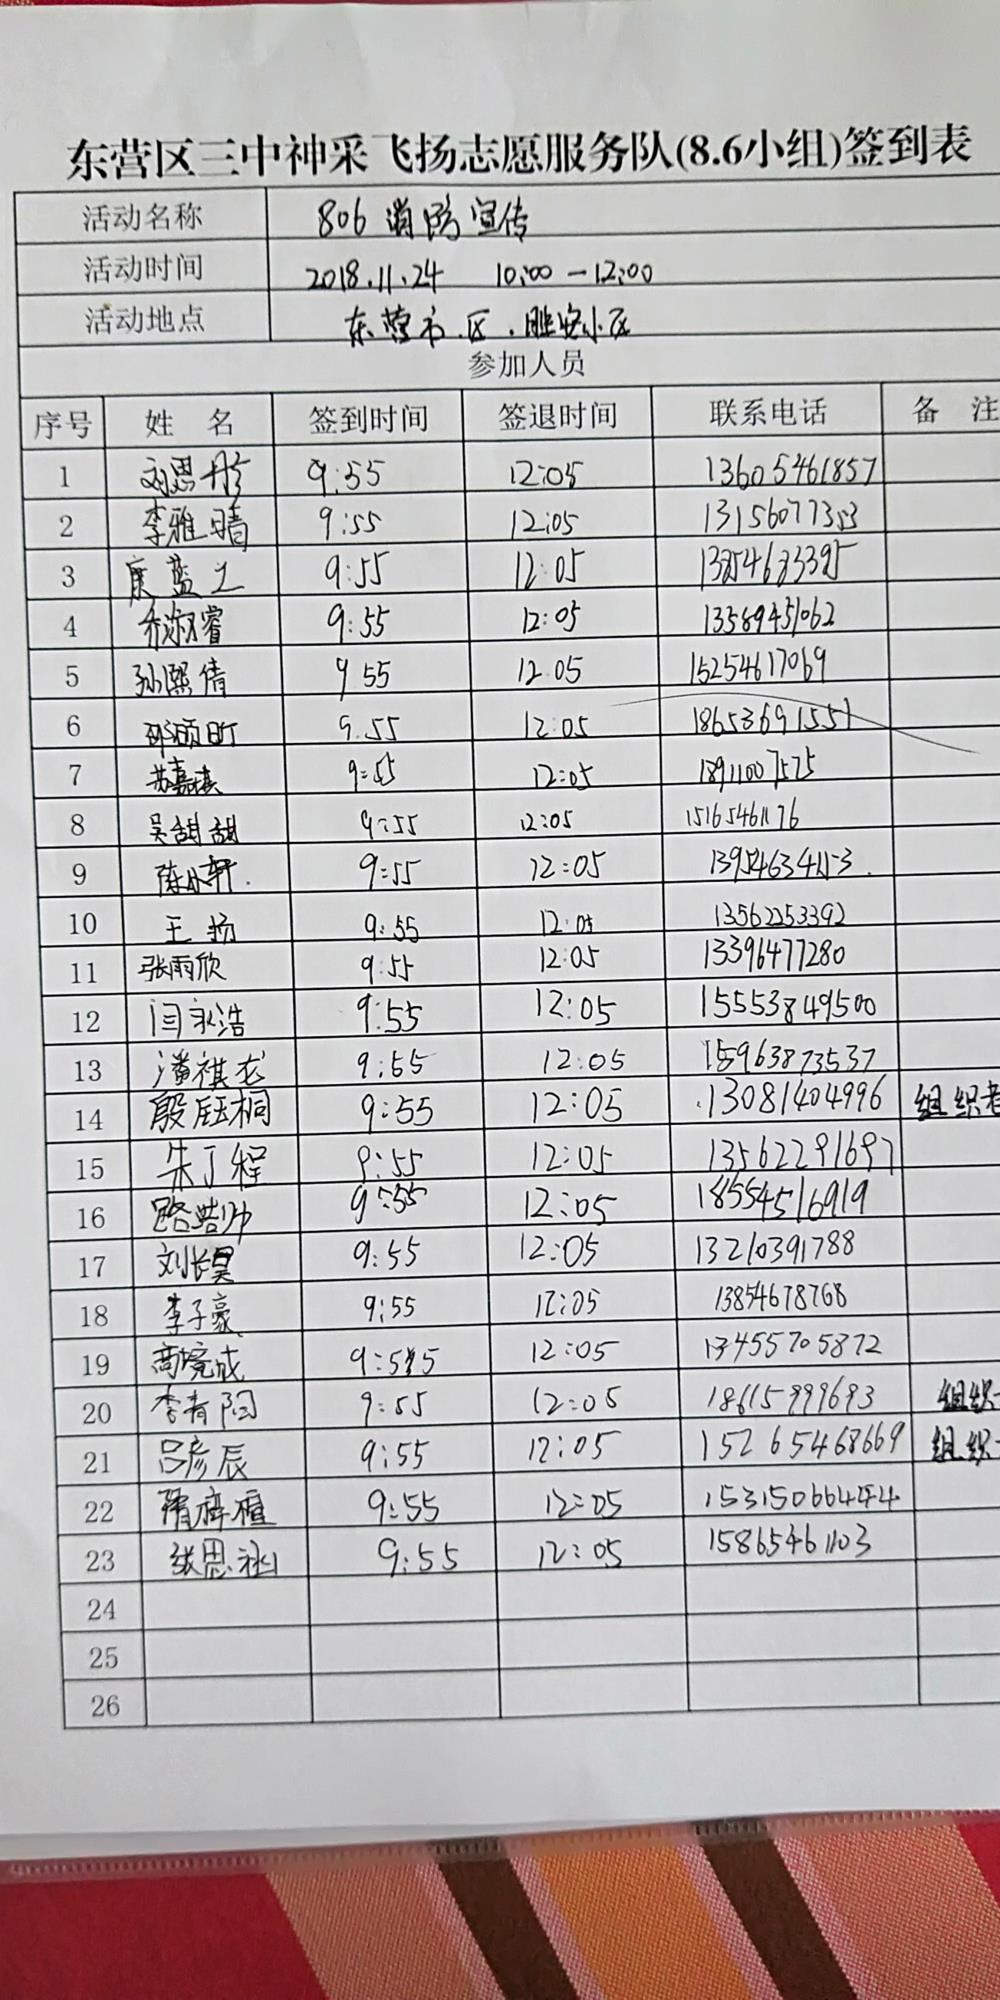 东营区三中神采飞扬志愿服务队(8.6小组)签到表
活动名称 806消防宣传
活动时间 2018.11.24 10:00—12:00
活动地点 东营市.区.胜安小区
参加人员
序号 姓名 签到时间 签退时间 联系电话 备注
1 刘思彤 9:55 12:05 13605461857
2 李雅晴 9:55 12:05
3 9:55 12:05
4 9:55 12:05 13589451062
5 孙熙倩 9 55 12.05 15254617069
6 9.55 12:05 18653691551
7 苏嘉祺 9:55 12:05 18911007575
8 吴甜甜 9:55 12:05 15165461176
9 9:55 12:05
10 王扬 9:55 12:05 13562253392
11 张雨欣 9:55 12:05 13396477280
12 闫永浩 9:55 12:05 15553849500
13 潘祺龙 9:55 12:05 15963873537
14 殷钰桐 9:55 12:05 13081404996 组织者
15 朱丁程 9:55 12:05 13562291697
16 路皓帅 9:55 12:05 18554516919
17 刘长昊 9:55 12:05 13210391788
18 李子豪 9:55 12:05 13854678768
19 高境成 9:55 12:05 13455705872
20 李青阳 9:55 12:05 18615999693 组织
21 吕彦辰 9:55 12:05 15265468669 组织
22 隋梓楦 9:55 12:05 15315066444
23 张思涵 9:55 12:05 15865461103
24
25
26